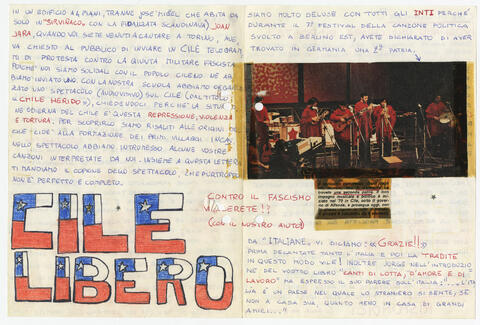 IN UN EDIFICIO A 4 PIANI, TRANNE JOSE' MIGUEL CHE ABITA DA
SOLO IN "SIRVINALO", CON LA FIDANZATA SCANDINAVA) JOAN
JARA, QUANDO VOI SIETE VENUTI A CANTARE A TORINO, AVE
VA CHIESTO AL PUBBLICO DI INVIARE IN CILE TELEGRAM
MI DI PROTESTA CONTRO LA GIUNTA MILITARE FASCISTA.
POICHE' NOI SIAMO SOLIDALI CON IL POPOLO CILENO NE AB
BIAMO INVIATO UNO. CON LA NOSTRA SCUOLA ABBIAMO ORGANIZ
ZATO UNO SPETTACOLO (AUDIOVISIVO) SUL CILE (DAL TITOLO:
«CHILE HERIDO»), CHIEDENDOCI, PERCHE' LA SITUAZIO
NE ODIERNA DEL CILE E' QUESTA: REPRESSIONE, VIOLENZA
E TORTURA. PER SCOPRIRLO SIAMO RISALITI ALLE ORIGINI DEL
CILE, CIOE' ALLA FORMAZIONE DEI PRIMI VILLAGGI INCAS.
NELLO SPETTACOLO ABBIAMO INTROMESSO ALCUNE VOSTRE
CANZONI INTERPRETATE DA NOI. INSIEME A QUESTA LETTERA
TI MANDIAMO IL COPIONE DELLO SPETTACOLO, CHE PURTROPPO
NON E' PERFETTO E COMPLETO.
CILE
LIBERO
CONTRO IL FASCISMO
VINCERETE!!
(CON IL NOSTRO AIUTO)
SIAMO MOLTO DELUSE CON TUTTI GLI INTI PERCHE'
DURANTE IL 7° FESTIVAL DELLA CANZONE POLITICA
SVOLTO A BERLINO EST, AVETE DICHIARATO DI AVER
TROVATO IN GERMANIA UNA 2ª PATRIA.
trovato una seconda patria. Il suo
DA "ITALIANE", VI DICIAMO: «GRAZIE!!»
PRIMA DECANTATE TANTO L'ITALIA E POI LA TRADITE
IN QUESTO MODO VILE! INOLTRE JORGE NELL'INTRODUZIO
NE DEL VOSTRO LIBRO "CANTI DI LOTTA, D'AMORE E DI
LAVORO" HA ESPRESSO IL SUO PARERE SULL'ITALIA: "...L'ITA
LIA E' UN PAESE NEL QUALE LO STRANIERO SI SENTE, SE
NON A CASA SUA, QUANTO MENO IN CASA DI GRANDI
AMICI..."